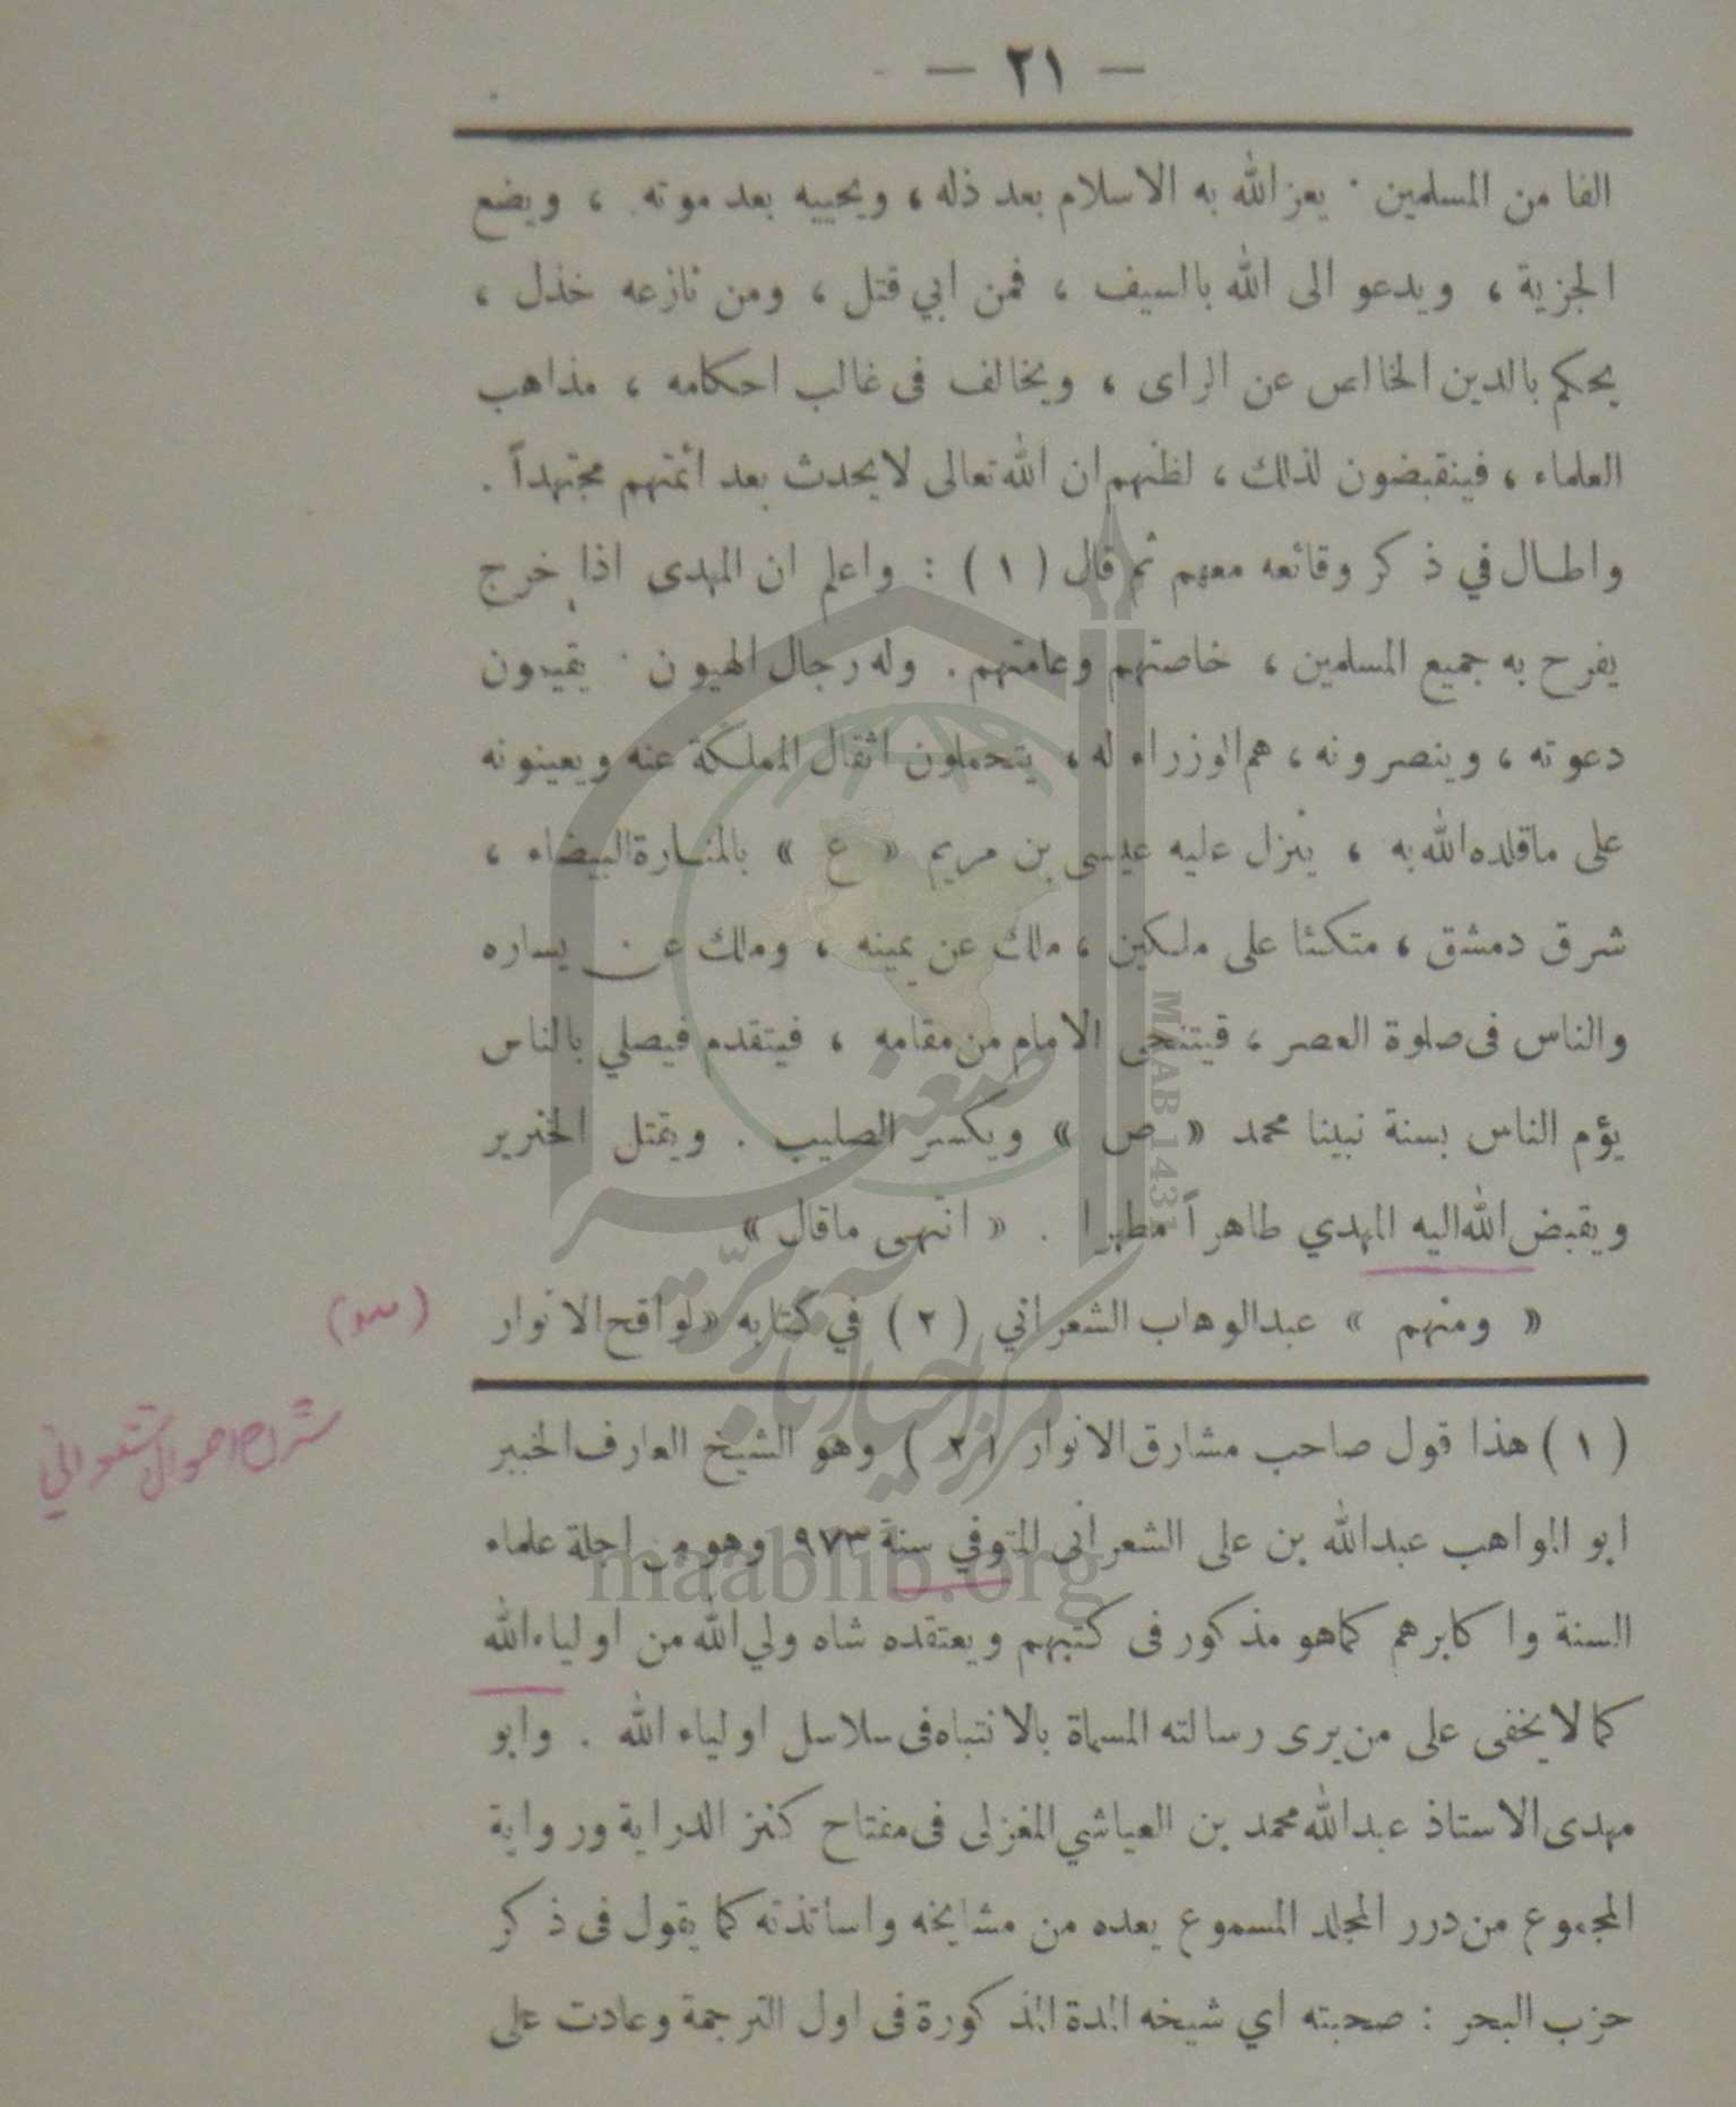 — ٢١ —
الفا من المسلمين . يعز الله به الاسلام بعد ذله ، ويحييه بعد موته ، ويضع
الجزية ، ويدعو الى الله بالسيف ، فمن ابي قتل ، ومن نازعه خذل ،
يحكم بالدين الخالص عن الراى ، ويخالف فى غالب احكامه ، مذاهب
العلماء ، فينقبضون لذلك ، لظنهم ان الله تعالى لا يحدث بعد ائمتهم مجتهداً .
واطال في ذكر وقائعه معهم ثم قال ( ١ ) : واعلم ان المهدى اذا خرج
يفرح به جميع المسلمين ، خاصتهم وعامتهم . وله رجال الهيون . يقيمون
دعوته ، وينصرونه ، هم الوزراء له ، يتحملون اثقال المملكة عنه ويعينونه
على ما قلده الله به ، ينزل عليه عيسى بن مريم « ع » بالمنارة البيضاء ،
شرق دمشق ، متكئا على ملكين ، ملك عن يمينه ، وملك عن يساره
والناس فى صلوة العصر ، فيتنحى الامام من مقامه ، فيتقدم فيصلي بالناس
يؤم الناس بسنة نبينا محمد « ص » ويكسر الصليب . ويقتل الخنزير
ويقبض الله اليه المهدي طاهراً مطهرا . « انتهى ماقال »
« ومنهم » عبدالوهاب الشعراني ( ٢ ) في كتابه «لواقح الانوار
( ١ ) هذا قول صاحب مشارق الانوار ( ٢ ) وهو الشيخ العارف الخبير
ابو المواهب عبدالله بن على الشعرانى المتوفي سنة ٩٧٣ وهو من اجلة علماء
السنة واكابرهم كماهو مذكور فى كتبهم ويعتقده شاه ولي الله من اولياء الله
كما لا يخفى على من يرى رسالته المسماة بالانتباه فى سلاسل اولياء الله . وابو
مهدى الاستاذ عبدالله محمد بن العياشي المغزلى فى مفتاح كنز الدراية ورواية
المجموع من درر المجلد المسموع يعده من مشايخه واساتذته كما يقول فى ذكر
حزب البحر : صحبته اي شيخه المدة المذكورة فى اول الترجمة وعادت على
maablib.org
MAAB 1431